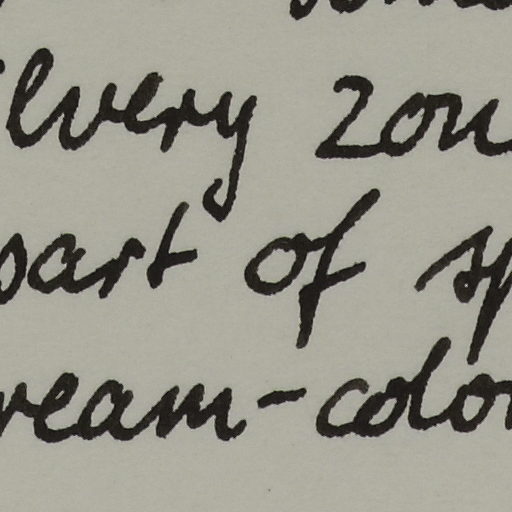 ilvery zon
part of sp
ream-color